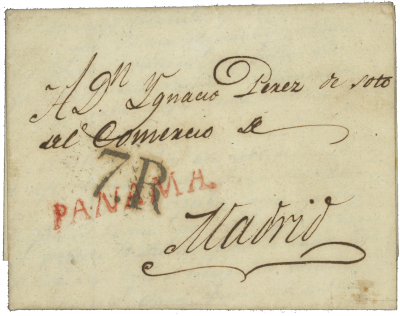 A Dn Ygnacio Perez de soto
del Comercio de
7R
PANAMA.
Madrid